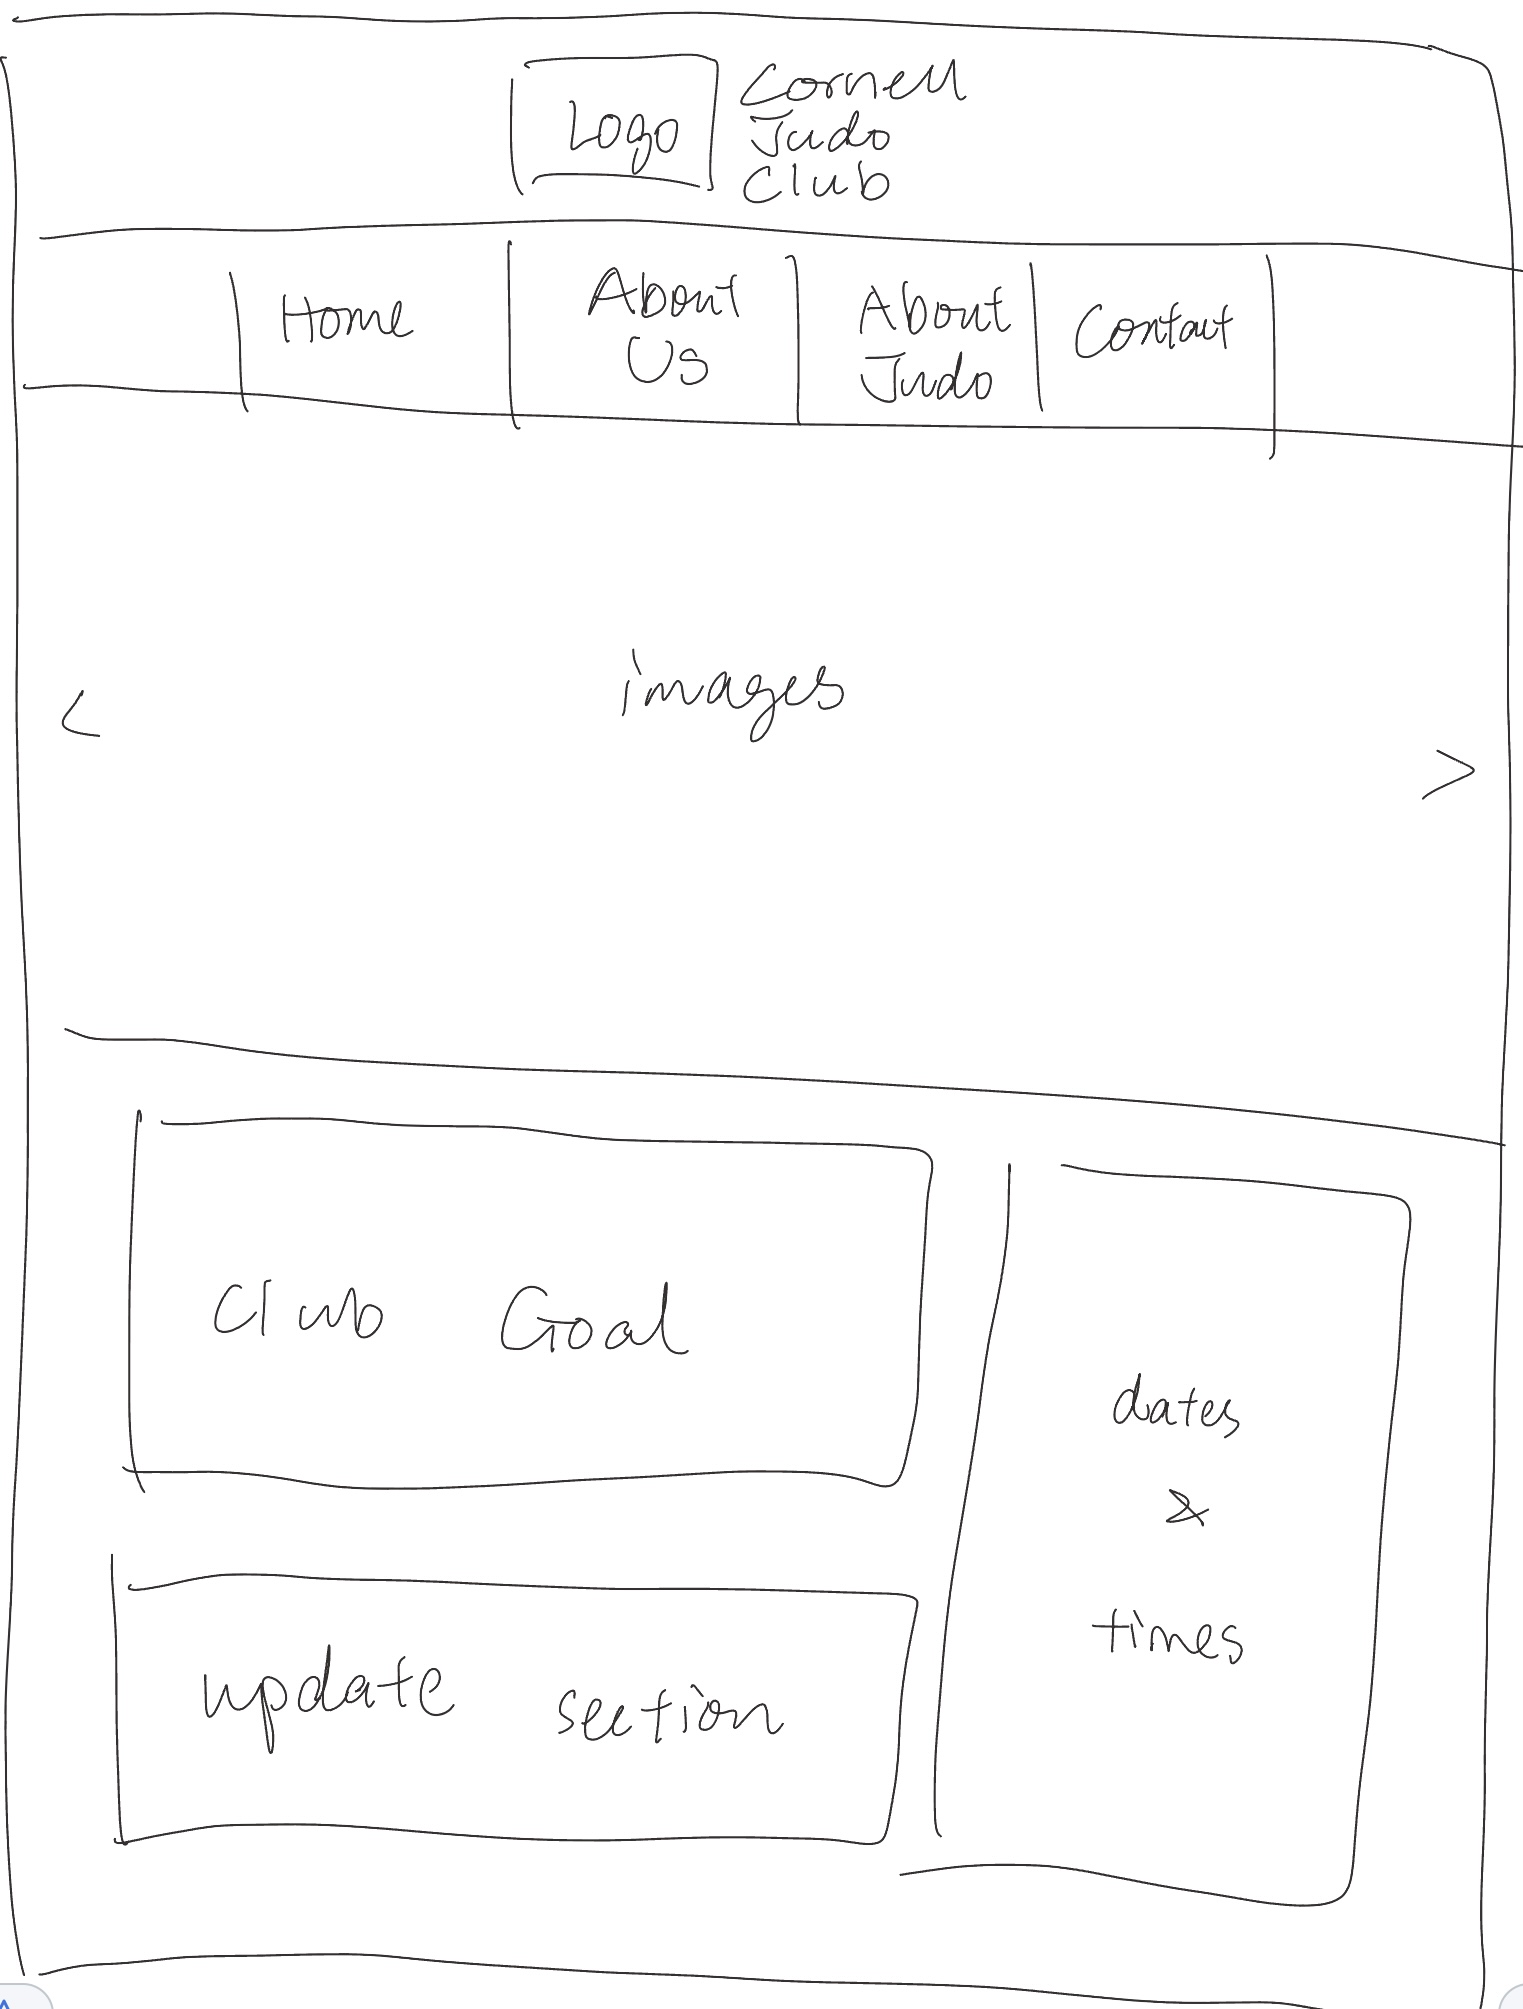 Logo
Cornell
Judo
Club
Home
About
Us
About
Judo
Contact
<
images
>
Club Goal
update section
dates
&
times